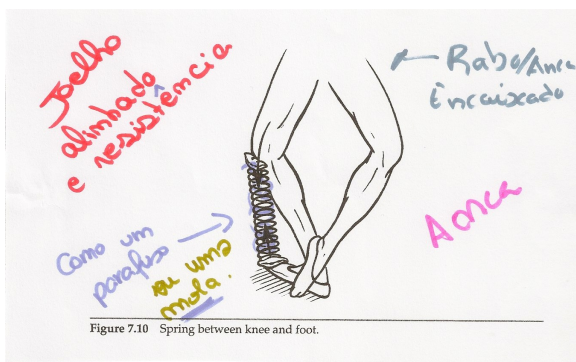 Joelho
alinhado
e resistência
← Rabo/Anca
Encaixado
Anca
Como um
parafuso
ou uma
mola.
Figure 7.10 Spring between knee and foot.